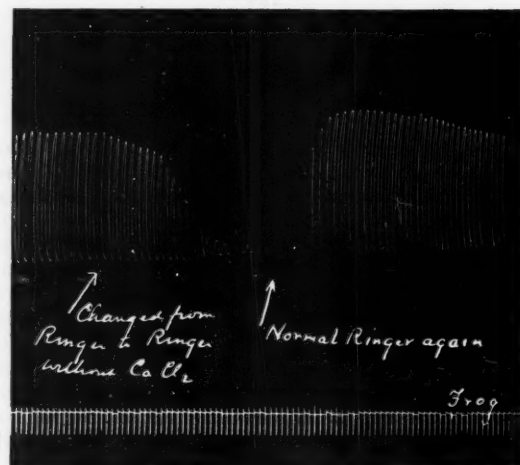 Changed from
Ringer to Ringer
without Ca Cl2
Normal Ringer again
Frog